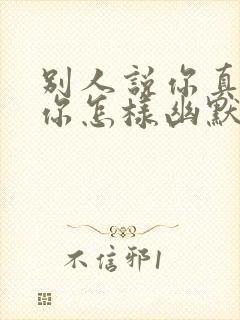 别人説你真
你怎樣幽默
不信邪1